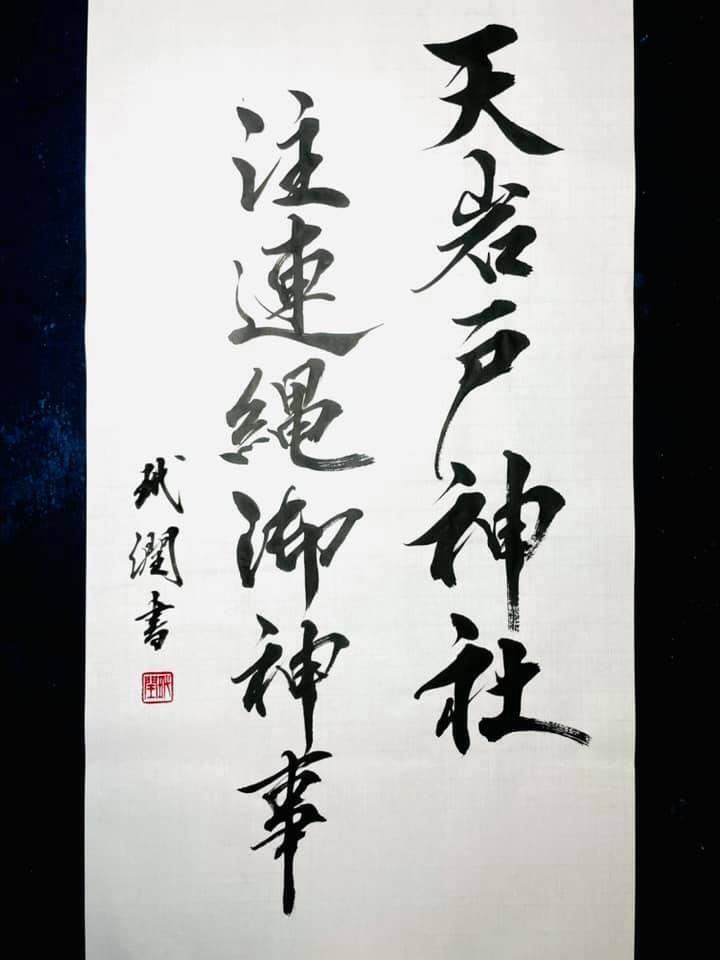 天岩戸神社
注連縄御神事
玳潤書